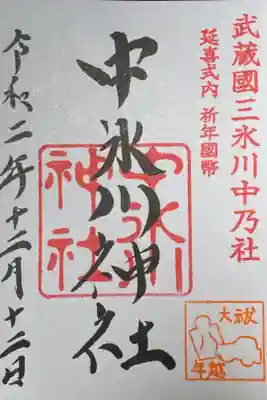 武蔵國三氷川中乃社
延喜式内 祈年國幣
中氷川神社
中氷川
神社
令和二年十二月十二日
大祓
年越